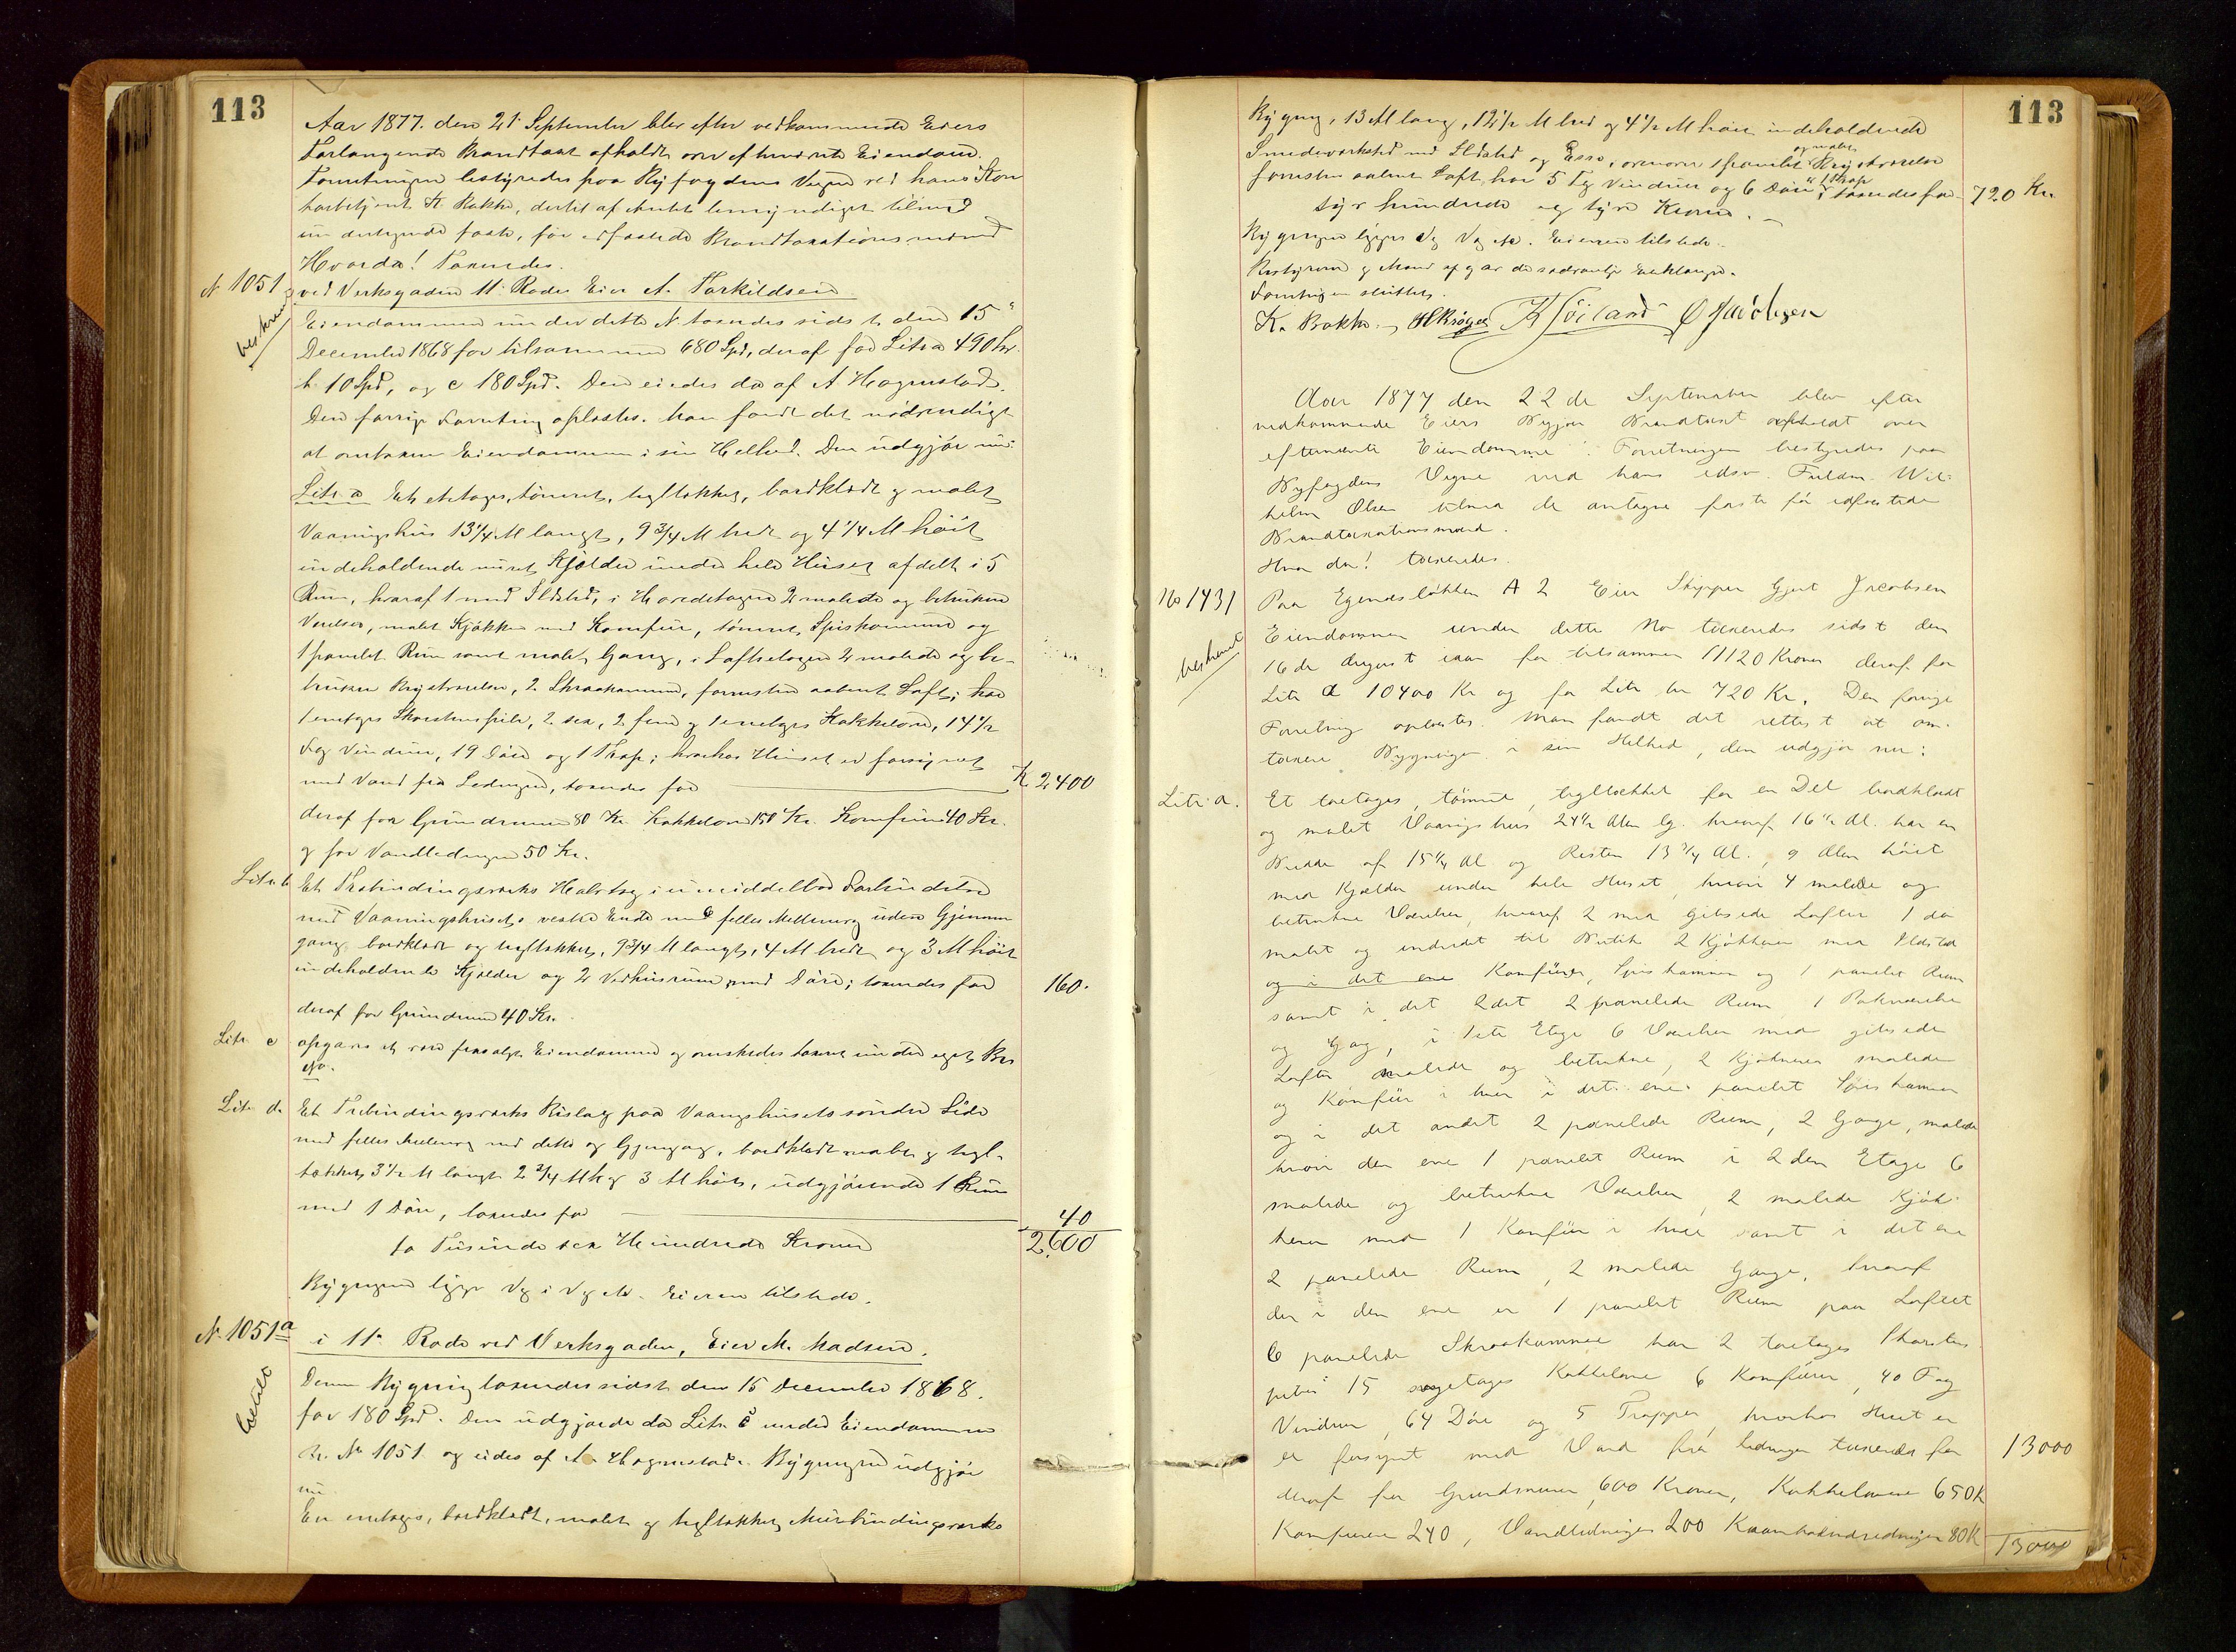 113
Aar 1877. den 21. September blev efter vedkommende Eiers
Forlangende Brandtaxt afholdt over efternævnte Eiendom.
Forretningen bestyredes paa Byfogdens Vegne ved hans Kon
torbetjent K. Bakke, dertil af Amtet bemyndiget tilmed
de antagne faste, før edfæstede Brandtaxationsmænd
Hvorda! Taxeredes.
N. 1051
beskreven
ved Verksgaden 11. Rode Eier A. Torkildsen
Eiendommen under dette N. taxeredes sidst den 15
December 1868 for tilsammen 680 Spd, deraf for Litr a 490 for
b. 10 Spd, og c 180 Spd. Den eiedes da af A Hognestad.
Den forrige Forretning oplæstes. Man fandt det nødvendigt
at omtaxere Eiendommen i sin Helhed. Den udgjør nu:
Litr. a Et etetages, tømret, tegltækket, bordklædt og malet
Vaaningshus 13 1/4 Al langt, 9 3/4 Al bredt og 4 1/4 Al høit
indeholdende muret Kjælder under hele Huset afdelt i 5
Rum, hvoraf 1 med Ildsted, i Hovedetagen 2 malede og betrukne
Værelser, malet Kjøkken med Komfur, tømret Spiskammer og
1 panelet Rum samt malet Gang, i Loftsetagen 2 malede og be-
trukne Kvistværelser, 2 Skraakammere, forresten aabent Loft; har
1 enetages Skorstenspibe, 2 sex, 2 fem og 1 enetges Kakkelovn, 14 1/2
Fag Vinduer, 19 Døre og 1 Trap; hvorhos Huset er forsynet
med Vand fra Ledningen, taxeredes for K. 2,400
deraf for Grundmuren 80 Kr. Kakkelovne 150 Kr. Komfuren 40 Kr.
og for Vandledningen 50 Kr.
Litr. b Et Trebindingsværks Halvtag i umiddelbar Forbindelse
med Vaaningshusets vestre Ende med fælles Mellemvæg uden Gjennem
gang bordklædt og tegltækket, 9 3/4 Al langt, 4 Al bredt og 3 Al høit
indeholdende Kjælder og 2 Vedhusrum, med Døre; taxeredes for 160.
deraf for Grundmuren 40 Kr.
Litr. c opgaves at være frasolgt Eiendommen og ønskedes taxeret under eget Br.
No.
Litr. d. Et Trebindingsværks Bislag paa Vaaningshusets søndre Side
med fælles Mellemvæg med dette og Gjennemgang, bordklædt malet og tegl-
tækket, 3 1/2 Al langt 2 3/4 Al b. og 3 Al høit, udgjørende 1 Rum
med 1 Dør, taxeredes for 40
to Tusinde sex Hundrede Kroner 2,600
Bygningen ligger Væg i Væg etc. Eieren tilstede.
N. 1051 a
betalt
i 11. Rode ved Verksgaden, Eier M. Madsen.
Denne Bygning taxeredes sidst den 15 December 1868.
for 180 Spd. Den udgjorde da Litr. c under Eiendommen
Br. No 1051. og eides af A. Hognestad. Bygningen udgjør
nu
En enetages, bordklædt, malet og tegltækket Murbindingsværks
113
Bygning, 13 Al lang, 12 1/2 Al bred og 4 1/2 Al høi indeholdende
Smedeværksted med Ildsted og Esse, ovenover 1 panelet og malet Kvistværelse
forresten aabent Loft, har 5 Fag Vinduer og 6 Døre, 1 Trap taxeredes for 720 Kr.
syv hundrede og tyve Kroner.
Bygningen ligger Væg i Væg etc. Eieren tilstede.
Bestyreren og Mænd afgav de sædvanlige Erklæringer.
Forretningen sluttet.
K. Bakke. H Krøger K Høiland O Jacobsen
Aar 1877 den 22 de September blev efter
vedkommende Eiers Begjær Brandtaxt afholdt over
efternævnte Eiendomme. Forretningen bestyredes paa
Byfogdens Vegne ved hans edsv. Fuldm. Wil-
helm Olsen tilmed de antagne faste før edfæstede
Brandtaxationsmænd.
Hvor da! taxeredes.
No 1431
beskrevet
Paa Egenesløkken A 2 Eier Skipper Gjert Jacobsen
Eiendommen under dette No taxeredes sidst den
16 de August iaar for tilsammen 11120 Kroner deraf for
Litr a 10400 Kr og for Litr b 720 Kr. Den forrige
Forretning oplæstes. Man fandt det rettest at om-
taxere Bygningen i sin Helhed, den udgjør nu:
Litr. a. Et toetages, tømret, tegltækket for en Del bordklædt
og malet Vaaningshus 24 1/2 Alen lg. hvoraf 16 1/2 Al. har en
Bredde af 15 1/4 Al og Resten 13 3/4 Al., 9 Alen høit
med Kjælder under hele Huset, hvori 4 malede og
betrukne Værelser, hvoraf 2 med gibsede Lofter 1 do
malet og indredet til Butik 2 Kjøkkener med Ildsted
og i det ene Komfurer, Spiskammer og 1 panelet Rum
samt i det 2det 2 panelede Rum 1 Pakværelse
og Gang, i 1ste Etage 6 Værelser med gibsede
Lofter malede og betrukne, 2 Kjøkkener malede
og Komfur i hver i det ene panelet Spiskammer
og i det andet 2 panelede Rum, 2 Gange, malede
hvori den ene 1 panelet Rum i 2den Etage 6
malede og betrukne Værelser, 2 malede Kjøk-
kener med 1 Komfur i hver samt i det ene
2 panelede Rum, 2 malede Gange, hvoraf
der i den ene er 1 panelet Rum paa Loftet
6 panelede Skraakammere har 2 toetages Skorstens
piber 15 etages Kakkelovne 6 Komfurer, 40 Fag
Vinduer, 64 Døre og 5 Trapper, hvorhos Huset er
er forsynet med Vand fra ledningen taxeredes for 13000
deraf for Grundmuren 600 Kroner, Kakkelovne 650 K
Komfurene 240, Vandledningen 200 Kraanhaneindredningen 80 K 13000